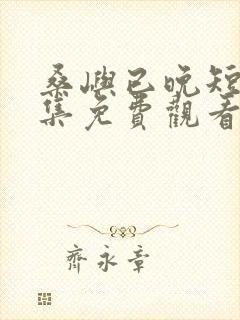 桑嶼已晚短
集免費觀看
齊永章